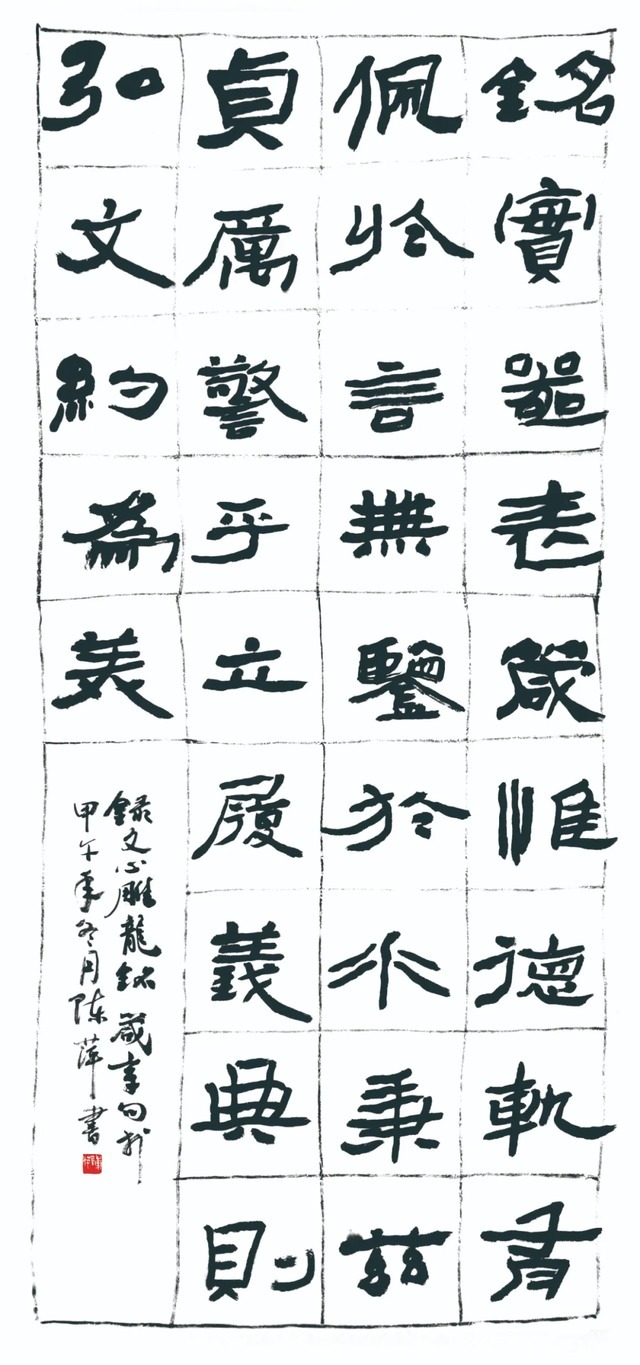 銘實器表箴惟德軌有
佩於言無鑒於水秉茲
貞厲警乎立履義典則
弘文約爲美
錄文心雕龍銘箴章句於
甲午年冬月陈萍書